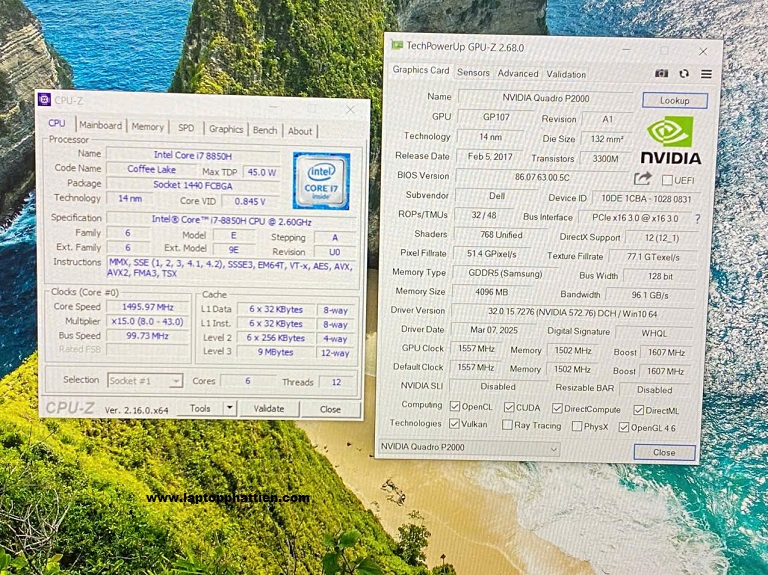 CPU-Z
CPU Mainboard Memory SPD Graphics Bench About
Processor
Name Intel Core i7 8850H
Code Name Coffee Lake Max TDP 45.0 W
Package Socket 1440 FCBGA
Technology 14 nm Core VID 0.845 V
intel
CORE i7
inside
Specification Intel® Core™ i7-8850H CPU @ 2.60GHz
Family 6 Model E Stepping A
Ext. Family 6 Ext. Model 9E Revision U0
Instructions MMX, SSE (1, 2, 3, 4.1, 4.2), SSSE3, EM64T, VT-x, AES, AVX,
AVX2, FMA3, TSX
Clocks (Core #0)
Core Speed 1495.97 MHz
Multiplier x15.0 (8.0 - 43.0)
Bus Speed 99.73 MHz
Rated FSB
Cache
L1 Data 6 x 32 KBytes 8-way
L1 Inst. 6 x 32 KBytes 8-way
Level 2 6 x 256 KBytes 4-way
Level 3 9 MBytes 12-way
Selection Socket #1 Cores 6 Threads 12
CPU-Z Ver. 2.16.0.x64 Tools Validate Close
TechPowerUp GPU-Z 2.68.0
Graphics Card Sensors Advanced Validation
Name NVIDIA Quadro P2000 Lookup
GPU GP107 Revision A1
Technology 14 nm Die Size 132 mm²
Release Date Feb 5, 2017 Transistors 3300M
NVIDIA
BIOS Version 86.07.63.00.5C UEFI
Subvendor Dell Device ID 10DE 1CBA - 1028 0831
ROPs/TMUs 32 / 48 Bus Interface PCIe x16 3.0 @ x16 3.0 ?
Shaders 768 Unified DirectX Support 12 (12_1)
Pixel Fillrate 51.4 GPixel/s Texture Fillrate 77.1 GTexel/s
Memory Type GDDR5 (Samsung) Bus Width 128 bit
Memory Size 4096 MB Bandwidth 96.1 GB/s
Driver Version 32.0.15.7276 (NVIDIA 572.76) DCH / Win10 64
Driver Date Mar 07, 2025 Digital Signature WHQL
GPU Clock 1557 MHz Memory 1502 MHz Boost 1607 MHz
Default Clock 1557 MHz Memory 1502 MHz Boost 1607 MHz
NVIDIA SLI Disabled Resizable BAR Disabled
Computing OpenCL CUDA DirectCompute DirectML
Technologies Vulkan Ray Tracing PhysX OpenGL 4.6
NVIDIA Quadro P2000 Close
www.laptopphattien.com